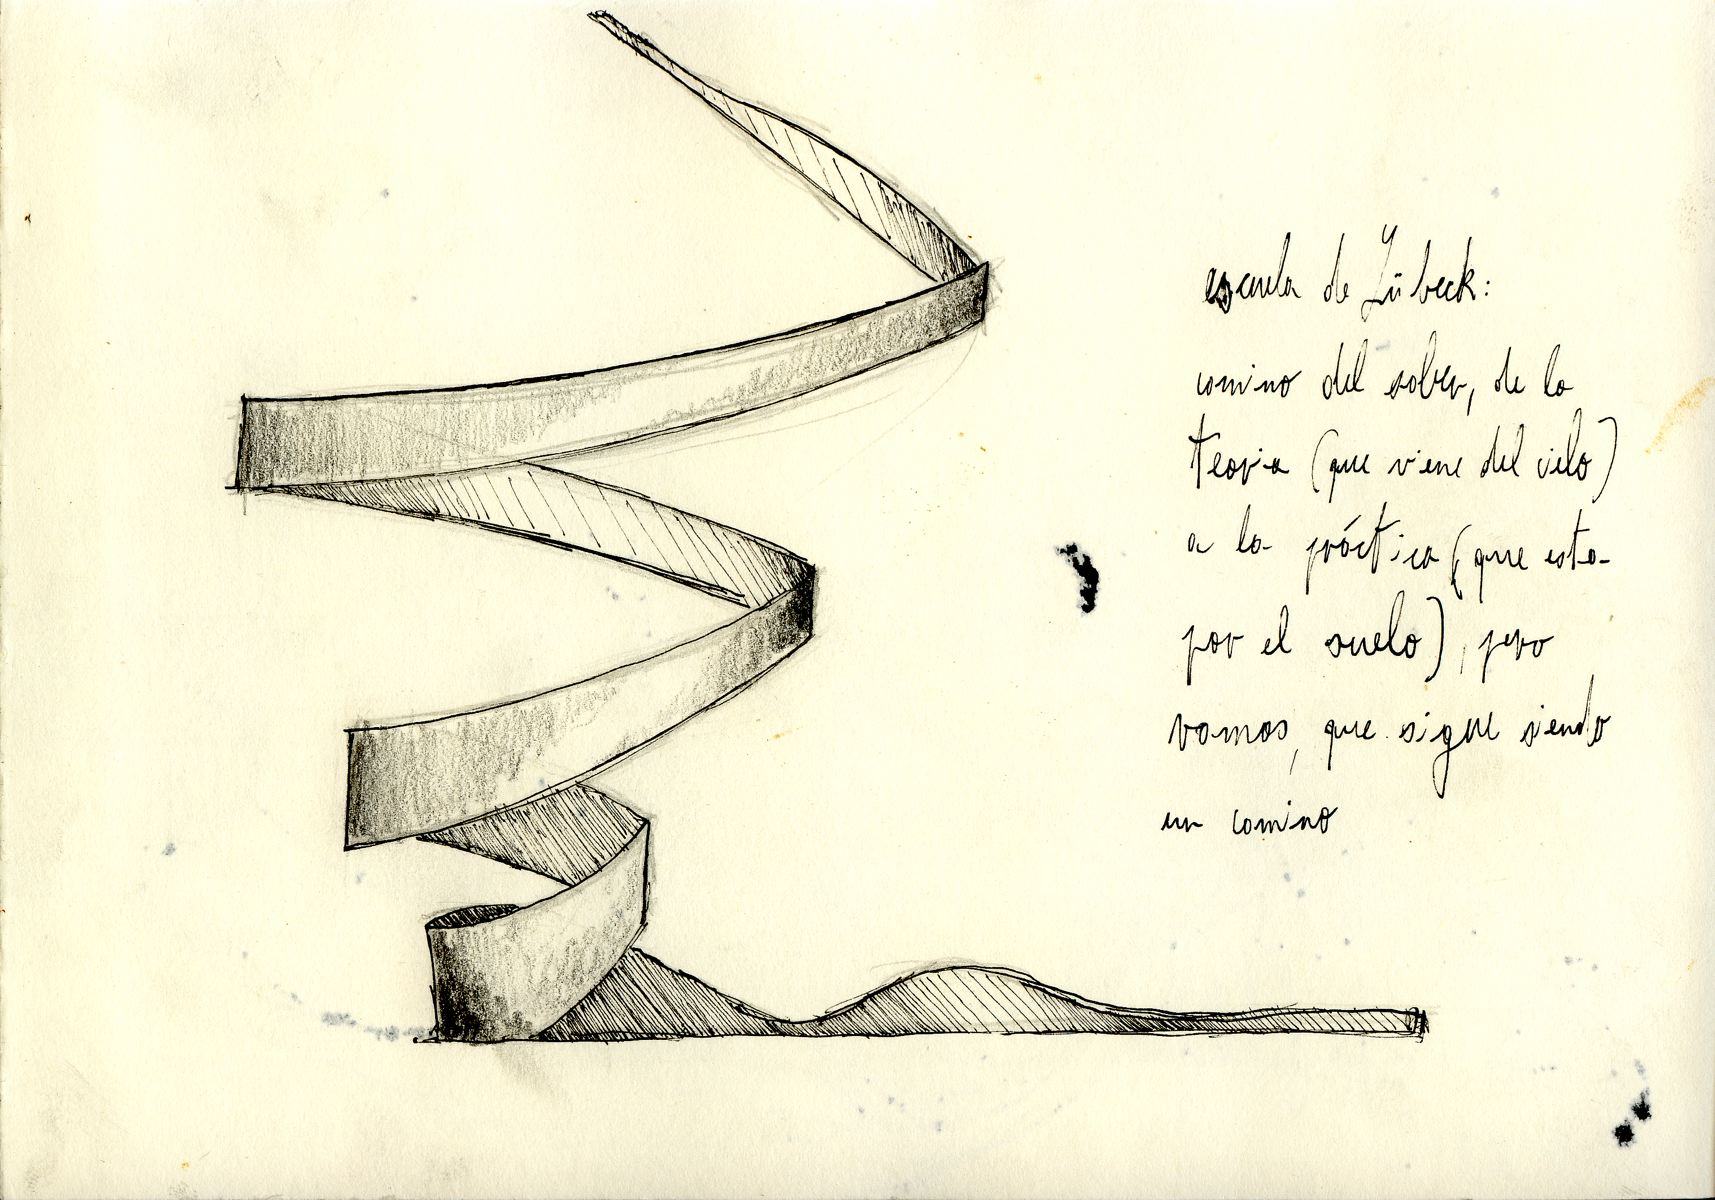 escuela de Lübeck:
camino del saber, de la
teoria (que viene del cielo)
a la práctica (que esta
por el suelo), pero
vamos, que sigue siendo
un camino